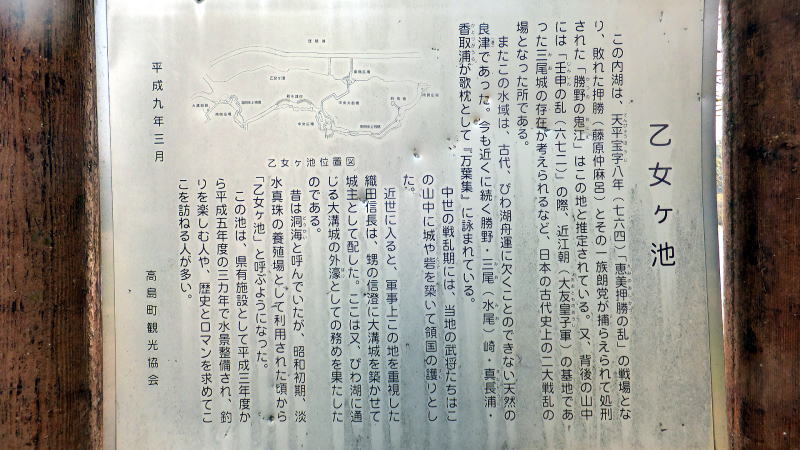 乙女ヶ池
この内湖は、天平宝字八年(七六四)「恵美押勝の乱」の戦場とな
り、敗れた押勝(藤原仲麻呂)とその一族朗党が捕らえられて処刑
された「勝野の鬼江」はこの地と推定されている。又、背後の山中
には「壬申の乱(六七二)」の際、近江朝(大友皇子軍)の基地であ
った三尾城の存在が考えられるなど、日本の古代史上の二大戦乱の
場となった所である。
またこの水域は、古代、びわ湖舟運に欠くことのできない天然の
良津であった。今も近くに続く勝野・三尾(水尾)崎・真長浦・
香取浦が歌枕として『万葉集』に詠まれている。
中世の戦乱期には、当地の武将たちはこ
の山中に城や砦を築いて領国の護りとし
た。
近世に入ると、軍事上この地を重視した
織田信長は、甥の信澄に大溝城を築かせて
城主として配した。ここは又、びわ湖に通
じる大溝城の外濠としての務めを果たした
のである。
昔は洞海と呼んでいたが、昭和初期、淡
水真珠の養殖場として利用された頃から
「乙女ヶ池」と呼ぶようになった。
この池は、県有施設として平成三年度か
ら平成五年度の三カ年で水景整備され、釣
りを楽しむ人や、歴史とロマンを求めてこ
こを訪ねる人が多い。
乙女ヶ池位置図
乙女ヶ池
平成九年三月
高島町観光協会